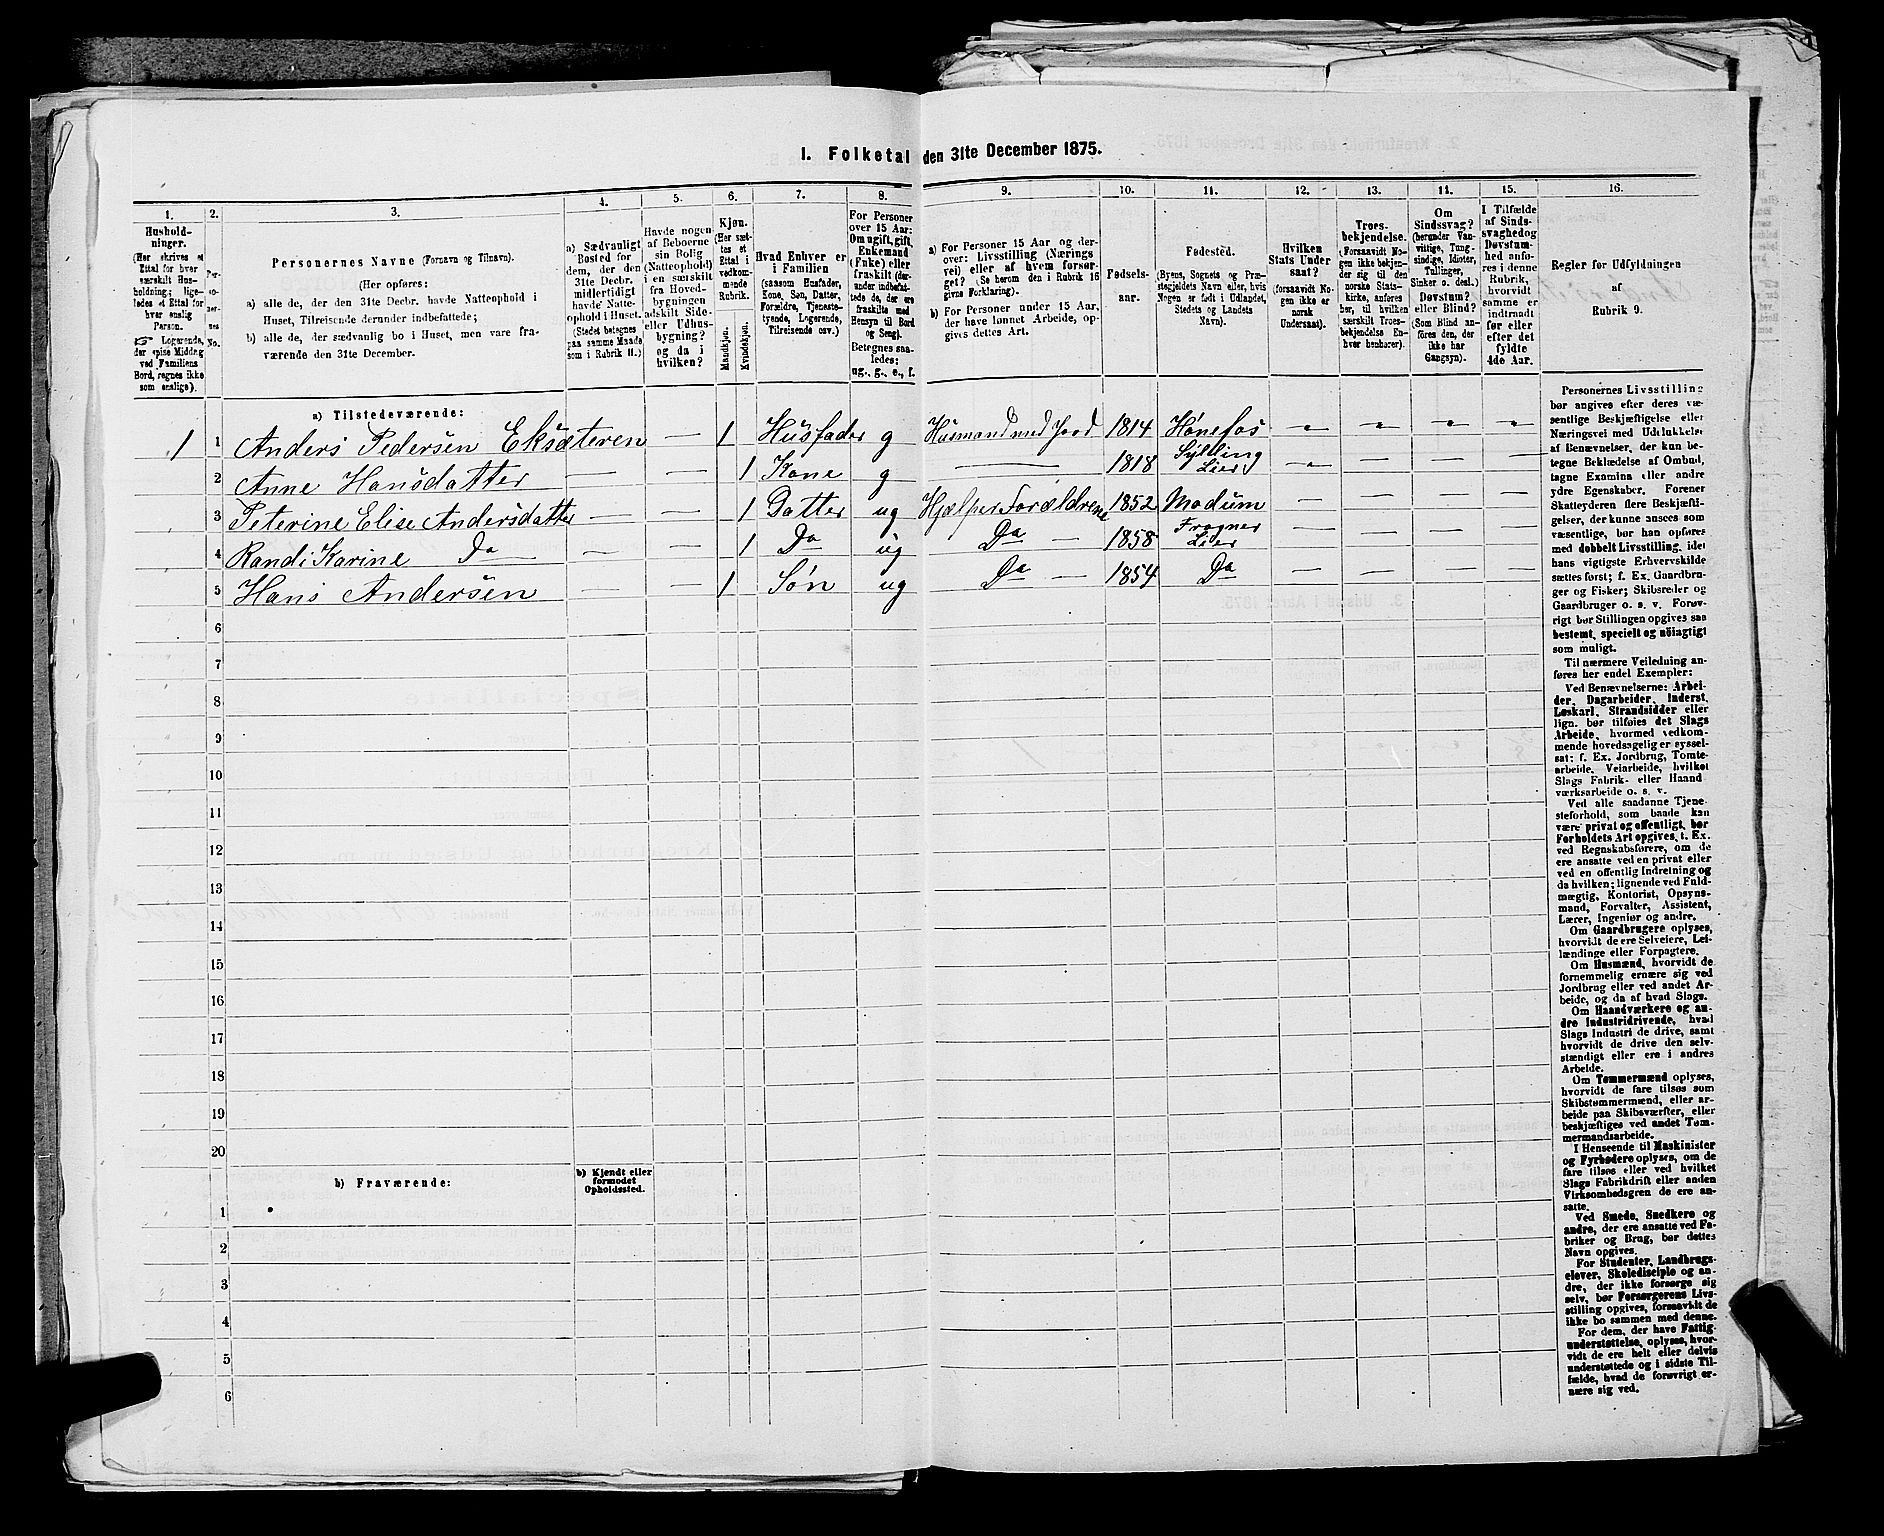 I. Folketal den 31te December 1875.
1. 2. 3. 4. 5. 6. 7. 8. 9. 10. 11. 12. 13. 14. 15. 16.
Hushold-
ninger.
(Her skrives et
Ettal for hver
særskilt Hus-
holdning; lige-
ledes et Ettal for
hver enslig
Person.
Logerende,
der spise Middag
ved Familiens
Bord, regnes ikke
som enslige).
Per-
so-
ner-
nes
No.
Personernes Navne (Fornavn og Tilnavn).
(Her opføres:
a) alle de, der den 31te Decbr. havde Natteophold i
Huset, Tilreisende derunder indbefattede;
b) alle de, der sædvanlig bo i Huset, men vare fra-
værende den 31te December.
a) Sædvanligt
Bosted for
dem, der den
31te Decbr.
midlertidigt
havde Natte-
ophold i Huset.
(Stedet betegnes
paa samme Maade
som i Rubrik 11.)
Havde nogen
af Beboerne
sin Bolig
(Natteophold)
i en særskilt
fra Hoved-
bygningen
adskilt Side-
eller Udhus-
bygning?
og da i
hvilken?
Kjøn.
(Her sæt-
tes et
Ettal i
vedkom-
mende
Rubrik.
Mandkjøn.
Kvindekjøn.
Hvad Enhver er
i Familien
(saasom Husfader,
Kone, Søn, Datter,
Forældre, Tjeneste-
tyende, Logerende,
Tilreisende osv.)
For Personer
over 15 Aar:
Om ugift, gift,
Enkemand
(Enke) eller
fraskilt (der-
under indbefat-
tede de, der ere
fraskilte med
Hensyn til Bord
og Seng).
Betegnes saa-
ledes:
ug., g., e., f.
a) For Personer 15 Aar og der-
over: Livsstilling (Nærings
vei) eller af hvem forsør-
get? (Se herom den i Rubrik 16
givne Forklaring).
b) For Personer under 15 Aar,
der have lønnet Arbeide, op-
gives dettes Art.
Fødsels-
aar.
Fødested.
(Byens, Sognets og Præ-
stegjeldets Navn eller, hvis
Nogen er født i Udlandet,
Stedets og Landets
Navn).
Hvilken
Stats Under
saat?
(forsaavidt No-
gen ikke er
norsk
Undersaat).
Troes-
bekjendelse.
(Forsaavidt No-
gen ikke bekjen-
der sig til den
norske Stats-
kirke, anføres
her, til hvilken
særskilt Troes-
bekjendelse En-
hver henhører).
Om
Sindssvag?
(herunder Van-
vittige, Tung-
sindige, Idioter,
Tullinger,
Sinker o. desl.)
Døvstum?
eller Blind?
(Som Blind an-
føres den, der
ikke har
Gangsyn).
I Tilfælde
af Sinds-
svaghed og
Døvstum-
hed anfø-
res i denne
Rubrik,
hvorvidt
samme er
indtraadt
før eller
efter det
fyldte
4de Aar.
Regler for Udfyldningen
af
Rubrik 9.
a) Tilstedeværende:
1 1 Anders Pedersen Eksæteren — 1 Husfader g Husmand med Jord 1814 Hønefos
2 Anne Hansdatter — — 1 Kone g — 1818 Sylling Lier
3 Peterine Elise Andersdatter — — 1 Datter ug Hjælper Forældrene 1852 Modum — — — —
4 Randi Karine Do — — 1 Do ug Do — 1858 Frogner Lier — — — —
5 Hans Andersen — — 1 Søn ug Do — 1854 Do — — — —
6
7
8
9
10
11
12
13
14
15
16
17
18
19
20
b) Fraværende:
b) Kjendt eller
formodet
Opholdssted.
1
2
3
4
5
6
Personernes Livsstilling
bør angives efter deres væ-
sentlige Beskjæftigelse eller
Næringsvei med Udelukkelse
af Benævnelser, der kun be-
tegne Beklædelse af Ombud,
tagne Examina eller andre
ydre Egenskaber. Forener
Skatteyderen flere Beskjæfti-
gelser, der kunne ansees som
væsentlige, bør han opføres
med dobbelt Livsstilling, idet
hans vigtigste Erhvervskilde
sættes først; f. Ex. Gaardbru-
ger og Fisker; Skibsreder og
Gaardbruger o. s. v. Forøv-
rigt bør Stillingen opgives saa
bestemt, specielt og nöiagtigt
som muligt.
Til nærmere Veiledning an-
føres her endel Exempler:
Ved Benævnelserne: Arbei-
der, Dagarbeider, Inderst,
Løskarl, Strandsidder eller
lign. bør tilføies det Slags
Arbeide, hvormed vedkom-
mende hovedsagelig er syssel-
sat; f. Ex. Jordbrug, Tomte-
arbeide, Veiarbeide, hvilket
Slags Fabrik- eller Haand
værksarbeide o. s. v.
Ved alle saadanne Tjene-
steforhold, som baade kan
være privat og offentligt, bør
Forholdets Art opgives, t. Ex.
ved Regnskabsførere, om de
ere ansatte ved en privat eller
ved en offentlig Indretning og
da hvilken; lignende ved Fuld-
mægtig, Kontorist, Opsyns-
mand, Forvalter, Assistent,
Lærer, Ingeniør og andre.
Om Gaardbrugere oplyses,
hvorvidt de ere Selveiere, Lei-
lændinge eller Forpagtere.
Om Husmænd, hvorvidt de
fornemmelig ernære sig ved
Jordbrug eller ved andet Ar-
beide, og da af hvad Slags.
Om Haandværkere og an-
dre Industridrivende, hvad
Slags Industri de drive, samt
hvorvidt de drive den selv-
stændigt eller ere i andres
Arbeide.
Om Tømmermænd oplyses,
hvorvidt de fare tilsøs som
Skibstømmermænd, eller ar-
beide paa Skibsværfter, eller
beskjæftiges ved andet Tøm-
mermandsarbeide.
I Henseende til Maskinister
og Fyrbødere oplyses, om de
fare tilsøs eller ved hvilket
Slags Fabrikdrift eller anden
Virksomhedsgren de ere an-
satte.
Ved Smede, Snedkere og
andre, der ere ansatte ved Fa-
briker og Brug, bør dettes
Navn opgives.
For Studenter, Landbrugs-
elever, Skoledisciple og an-
dre, der ikke forsørge sig
selv, bør Forsørgerens Livs-
stilling opgives, forsaavidt de
ikke bo sammen med denne.
For dem, der have Fattig-
understøttelse, oplyses, hvor-
vidt de ere helt eller delvis
understøttede og i sidste Til-
fælde, hvad de forøvrigt er-
nære sig ved.